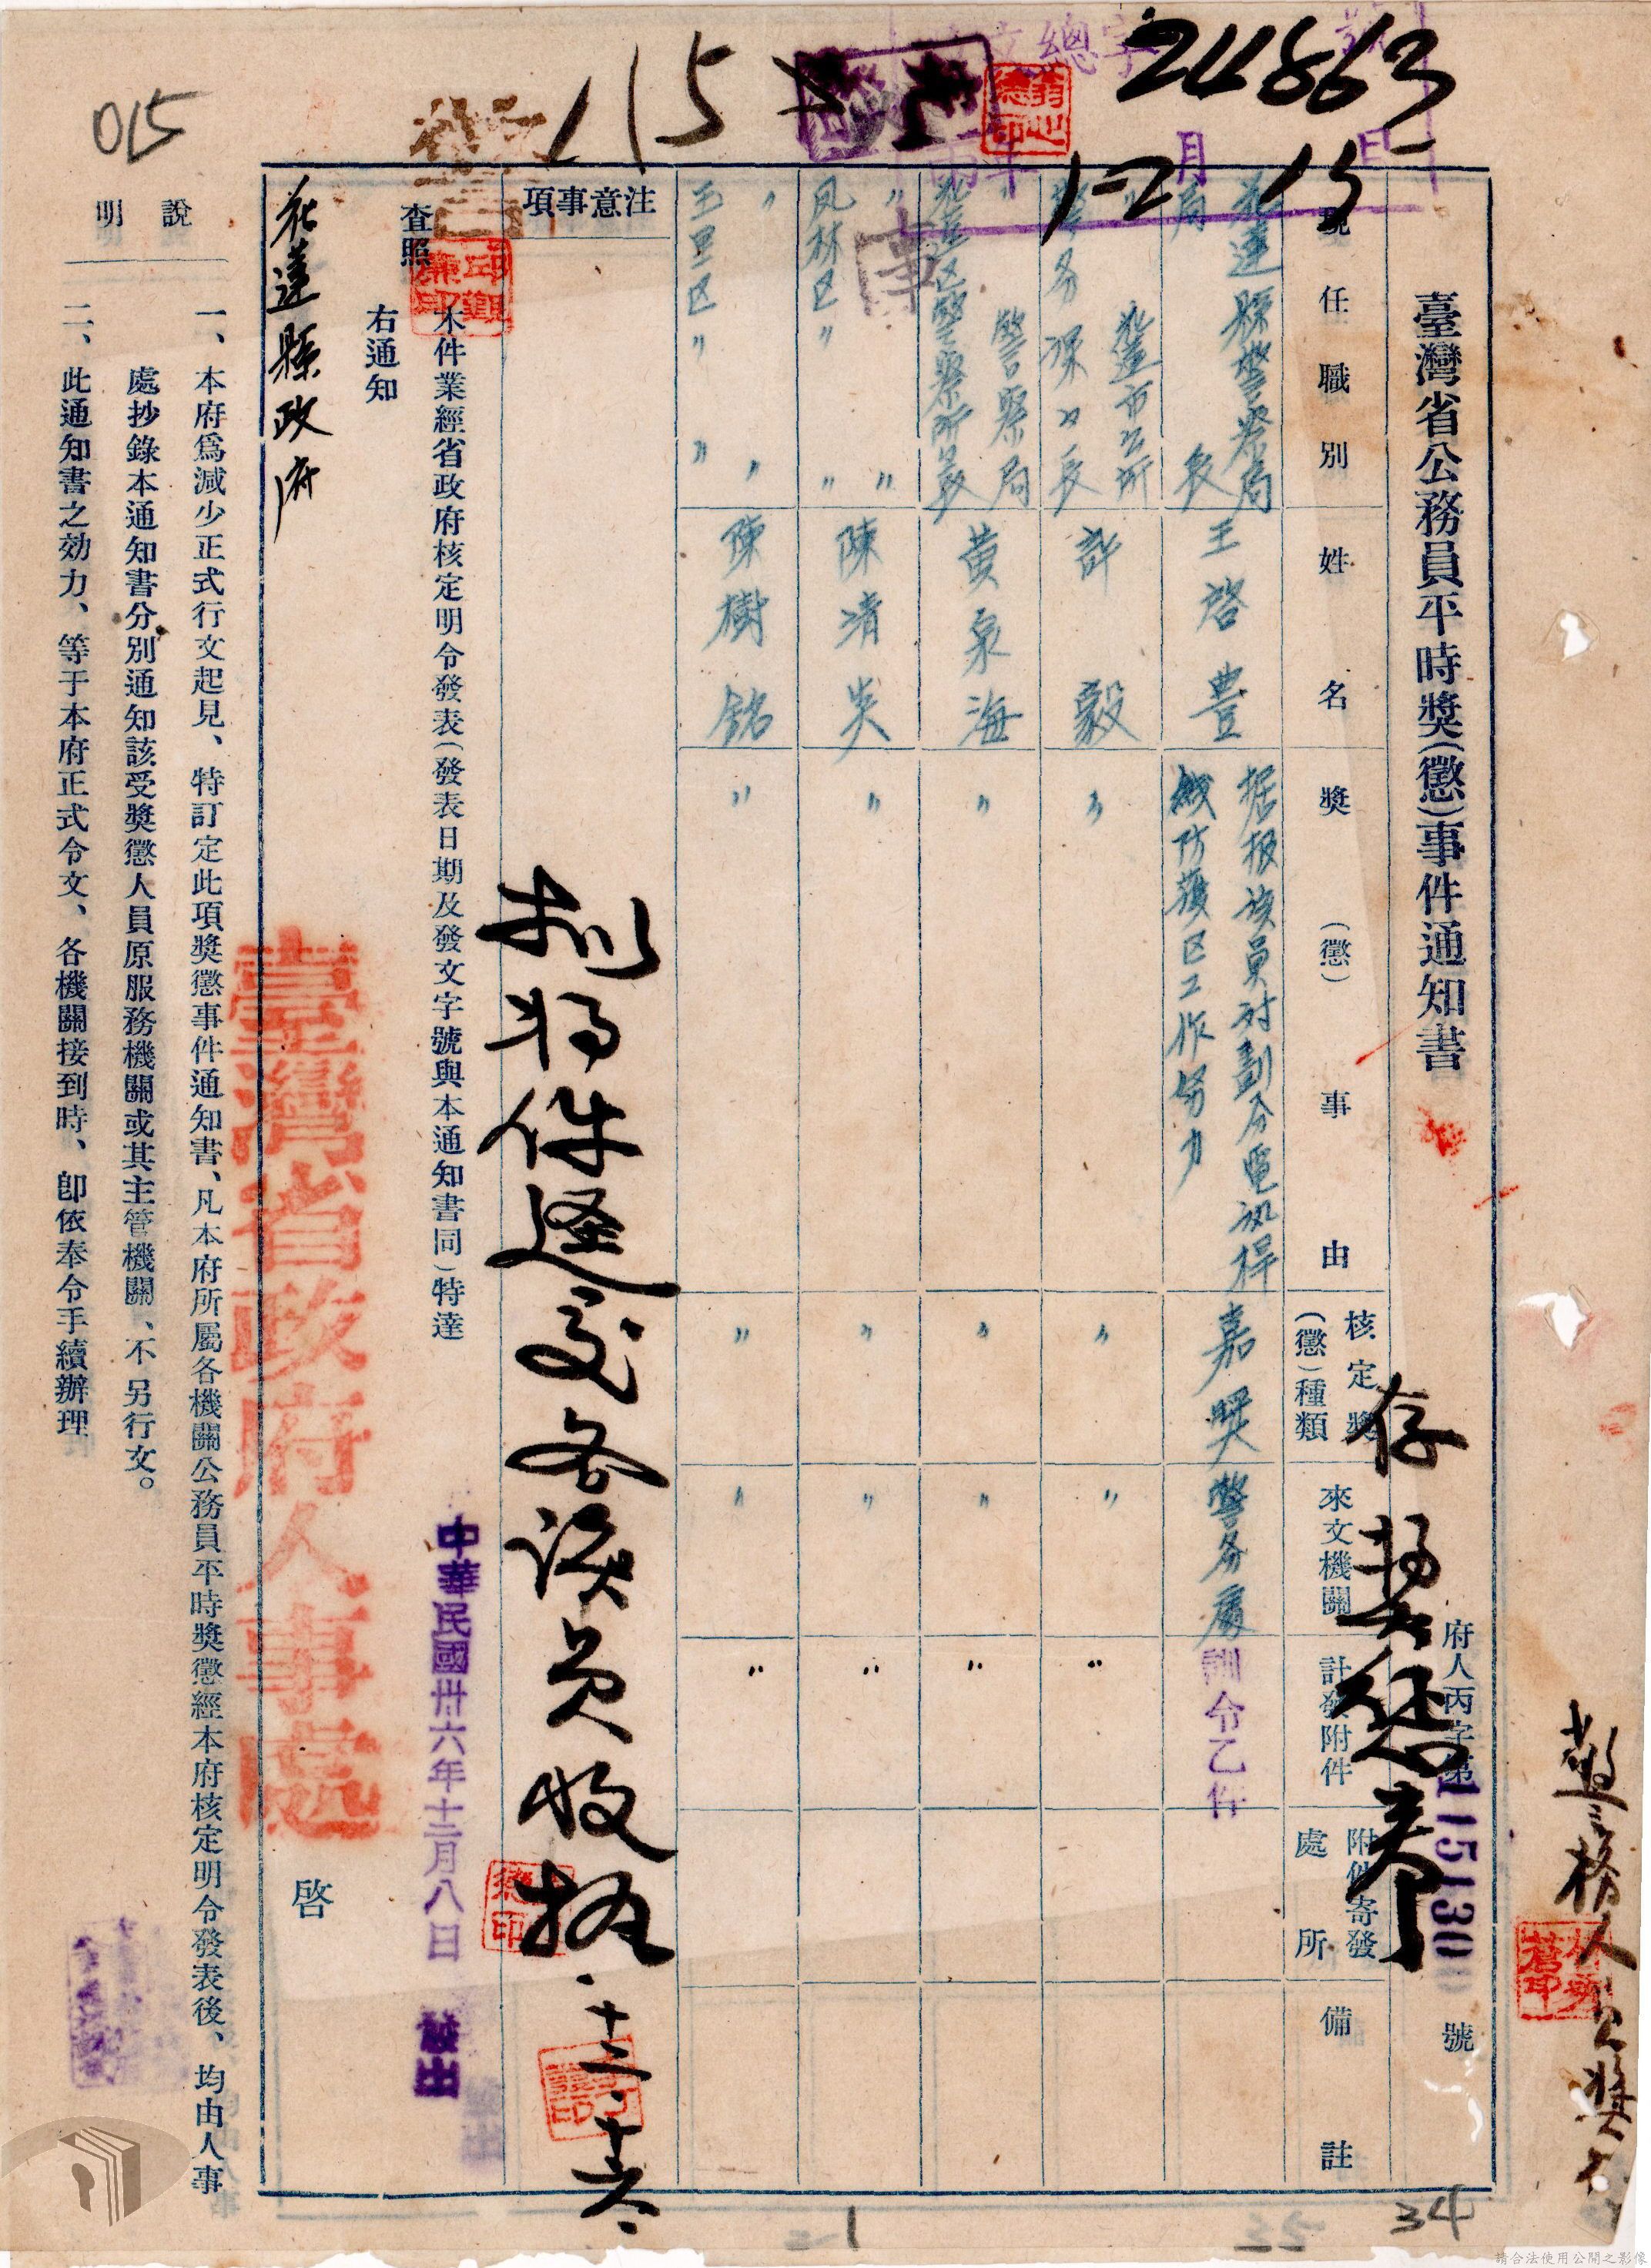 24863
12 15
115
015
臺灣省公務員平時獎(懲)事件通知書
府人丙字第115130號
存獎懲卷
現任職別
姓名
獎(懲)事由
核定獎(懲)種類
來文機關
計發附件
附件寄發處所
備註
花蓮縣警察局局長
王啓豊
据报該員对劃分電汛桿线防護区工作努力
嘉獎
警务處
訓令乙件
花蓮市公所
许毅
〃
〃
〃
〃
〃警察局花蓮区警察所所長
黄泉海
〃
〃
〃
〃
〃凤林区〃〃〃
陳清炎
〃
〃
〃
〃
〃玉里区〃〃〃
陳樹銘
〃
〃
〃
〃
注意事項
拟將件逕交各該員收执
十二.十六.
本件業經省政府核定明令發表(發表日期及發文字號與本通知書同)特達
查照
右通知
花蓮縣政府
臺灣省政府人事處
啓
中華民國卅六年十二月八日
發出
說明
一、本府爲減少正式行文起見、特訂定此項獎懲事件通知書、凡本府所屬各機關公務員平時獎懲經本府核定明令發表後、均由人事
處抄錄本通知書分別通知該受獎懲人員原服務機關或其主管機關、不另行文。
二、此通知書之効力、等于本府正式令文、各機關接到時、卽依奉令手續辦理
34
35
請合法使用公開之影像